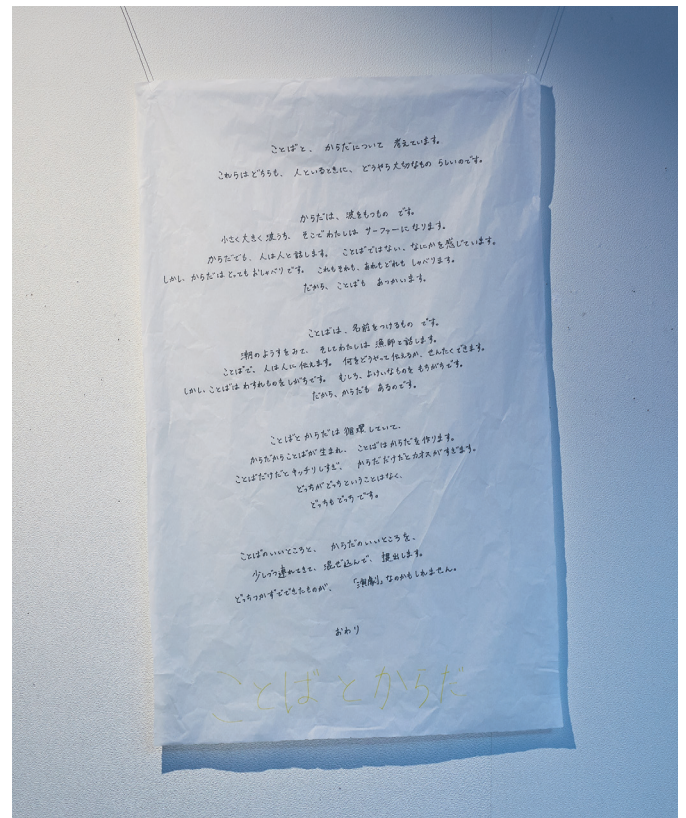 ことばと、からだについて 考えています。
これらはどちらも、人といるときに、どうやら大切なもの らしいのです。
からだは、波をもつもの です。
小さく大きく波うち、そこでわたしは サーファーになります。
からだでも、人は人と話します。 ことばではない、なにかを感じています。
しかし、からだはとってもおしゃべりです。 これもそれも、あれもどれも しゃべります。
だから、ことばも あつかいます。
ことばは、名前をつけるもの です。
潮のようすをみて、そしてわたしは 漁師と話します。
ことばで、人は人に伝えます。 何をどうやって伝えるか、せんたくできます。
しかし、ことばはわすれものをしがちです。 むしろ、よけいなものを もちがちです。
だから、からだも あるのです。
ことばとからだは 循環していて、
からだからことばが生まれ、 ことばはからだを作ります。
ことばだけだとキッチリしすぎ、 からだだけだとカオスがすぎます。
どっちがどっちということはなく、
どっちもどっちです。
ことばのいいところと、 からだのいいところを、
少しづつ連れてきて、混ぜ込んで、提出します。
どっちつかずでできたものが、 「演劇」なのかもしれません。
おわり
ことばとからだ